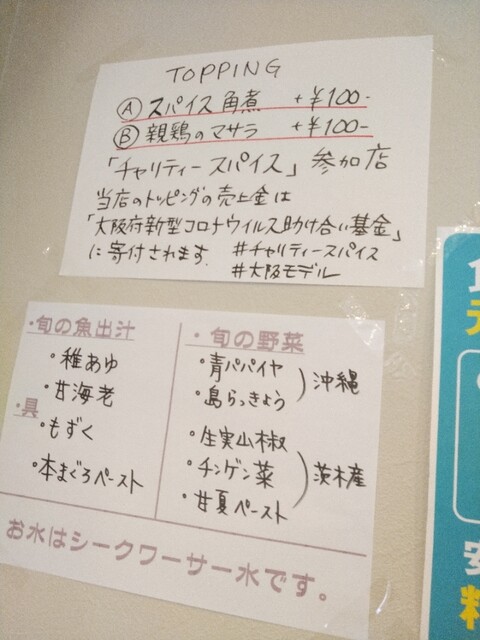 TOPPING
Ⓐ スパイス角煮 +¥100-
Ⓑ 親鶏のマサラ +¥100-
「チャリティースパイス」参加店
当店のトッピングの売上金は
「大阪府新型コロナウイルス助け合い基金」
に寄付されます. #チャリティースパイス
#大阪モデル
・旬の魚出汁
・稚あゆ
・甘海老
・具
・もずく
・本まぐろペースト
・旬の野菜
・青パパイヤ
・島らっきょう
)沖縄
・生実山椒
・チンゲン菜
・甘夏ペースト
)茨木産
お水はシークワーサー水です。
元
安
料